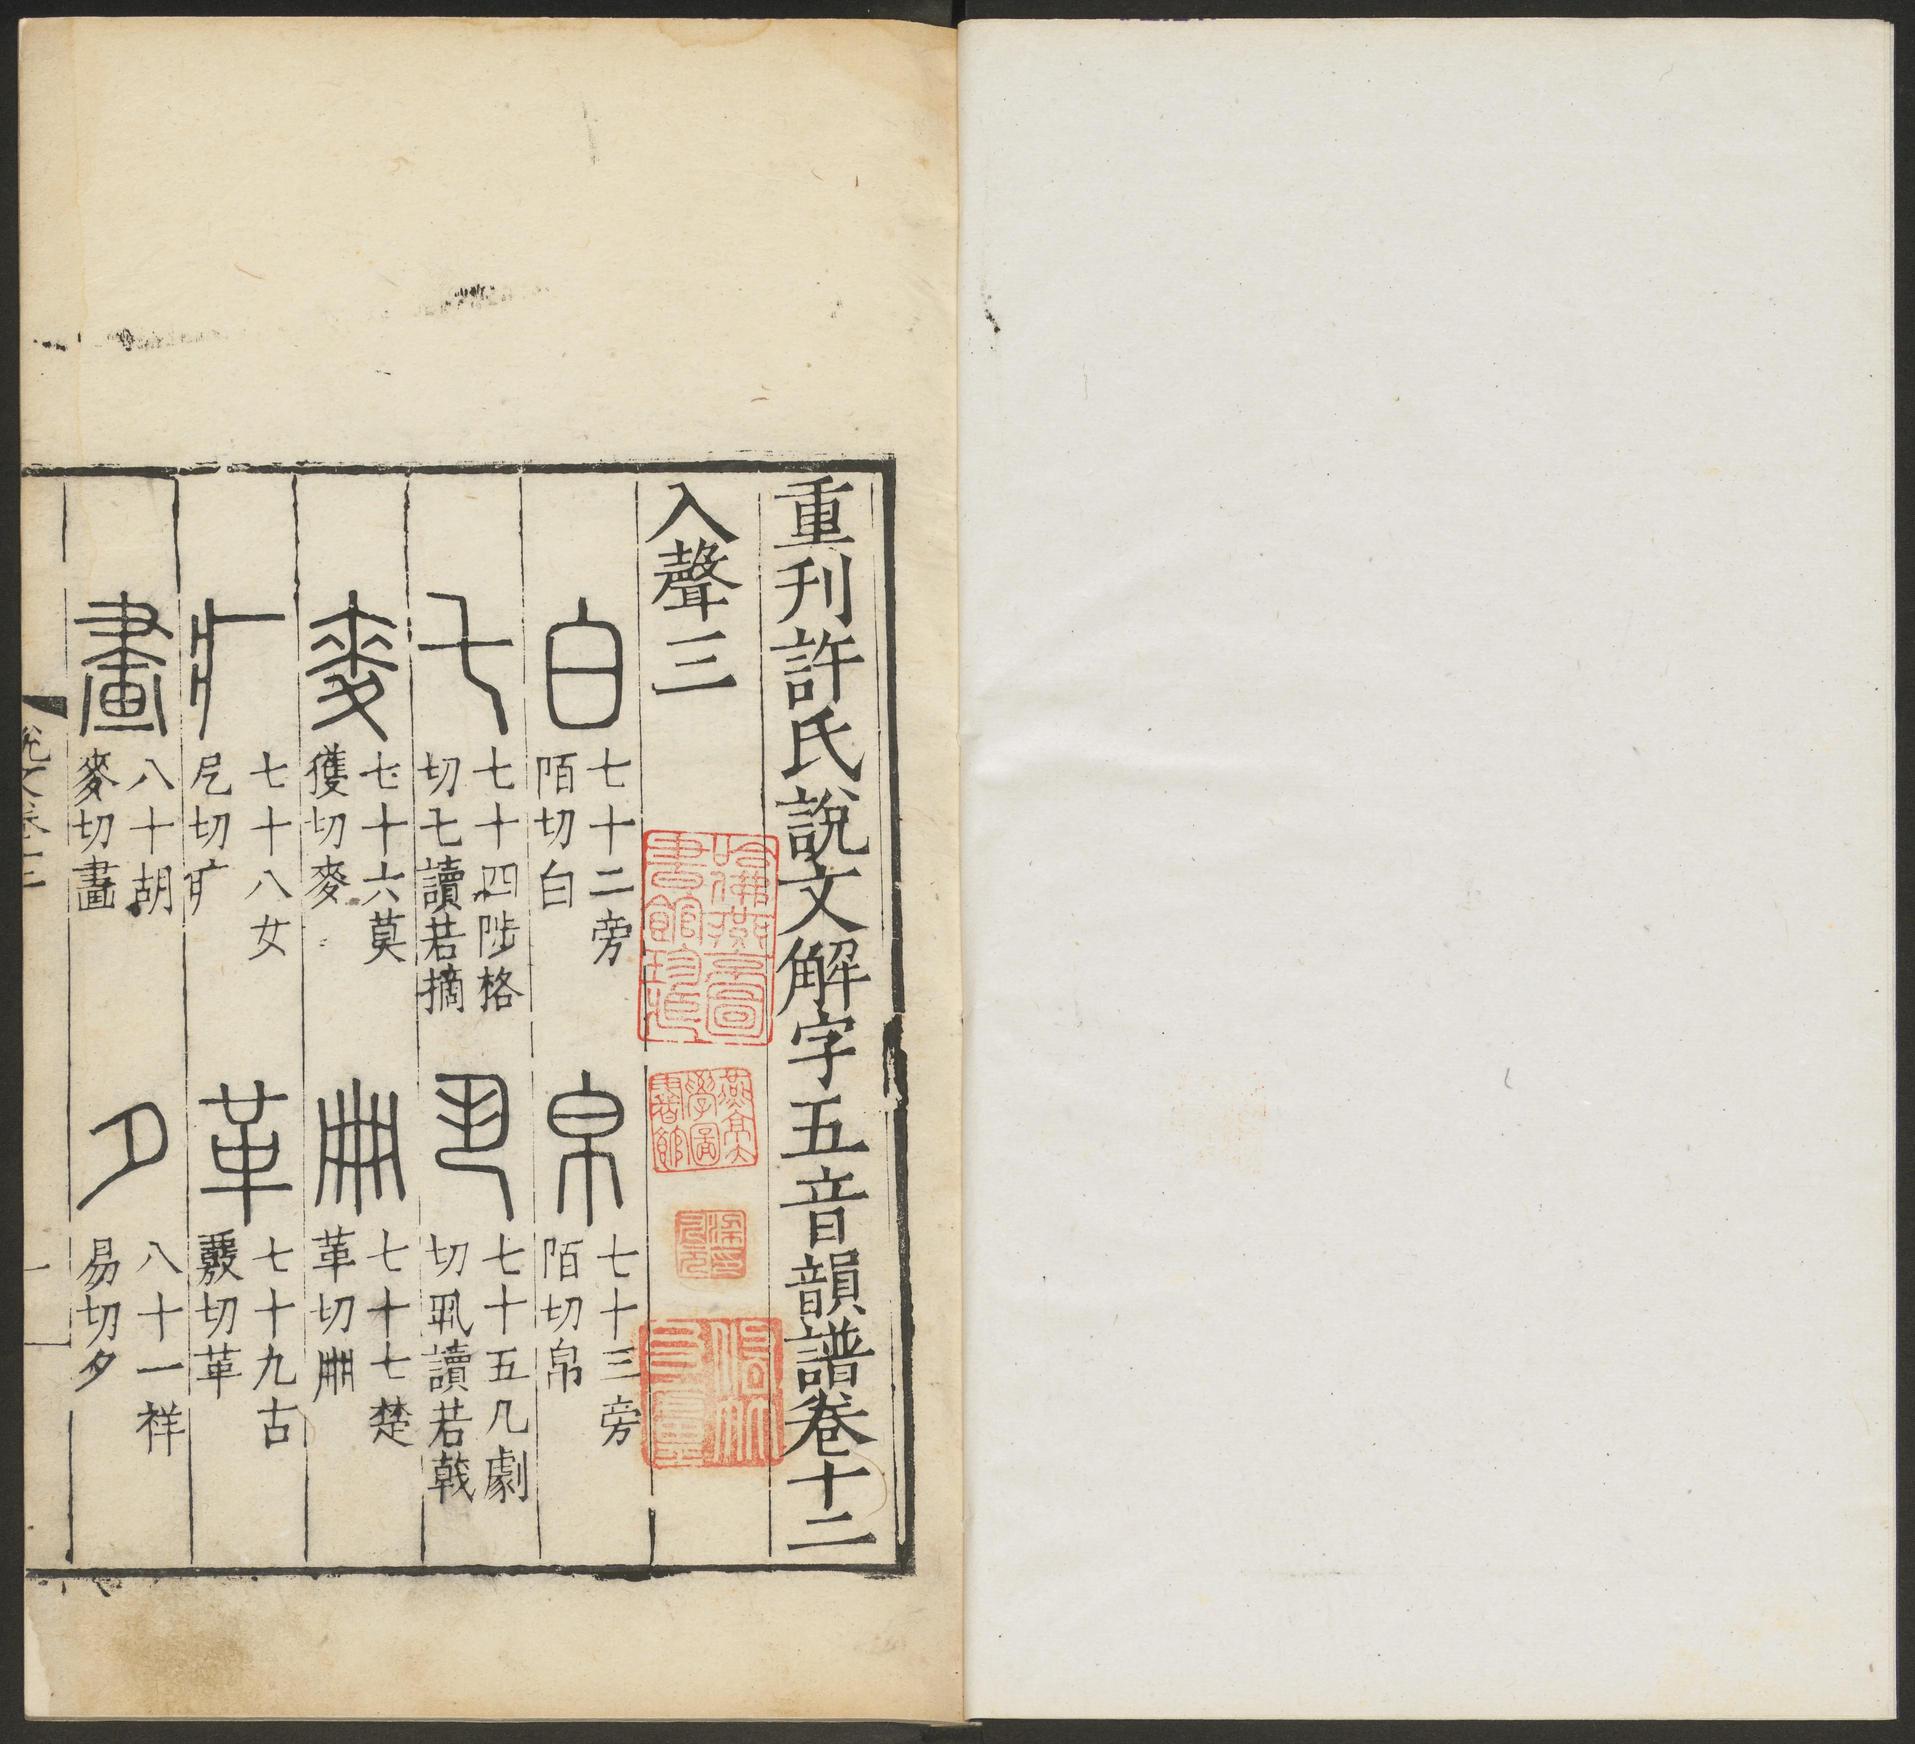 重刊許氏說文解字五音韻譜卷十二
入聲三
白
七十二旁
陌切白
帛
七十三旁
陌切帛
乇
七十四陟格
切乇讀若摘
丮
七十五几劇
切丮讀若戟
麥
七十六莫
獲切麥
𠕋
七十七楚
革切𠕋
疒
七十八女
戹切疒
革
七十九古
覈切革
畫
八十胡
麥切畫
夕
八十一祥
易切夕
哈佛燕
圖
書館珍
燕京大
學圖
書館